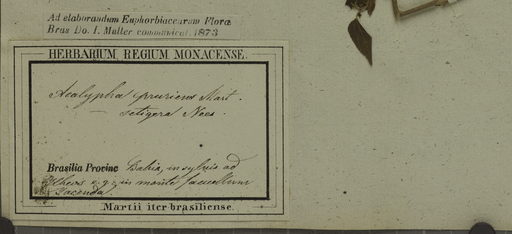 Ad elaborandum Euphorbiacearum Florae
Bras Do. I. Muller communicat. 1873
HERBARIUM REGIUM MONACENSE.
Acalypha pruriens Mart.
— setigera Nees.
Brasilia Provinc Bahia, in sylvis ad
in monte
Martii iter brasiliense.